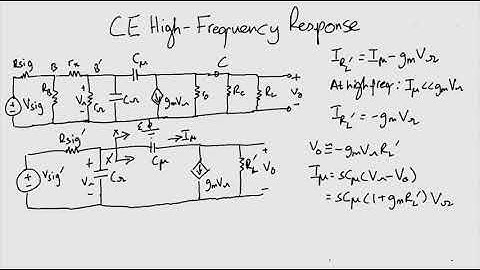 CE High-Frequency Response
Rsig B rx B' Cμ C
Vsig RB Vπ rπ Cπ gmVπ ro Rc RL Vo
E
Rsig' X Cμ Iμ
X'
Vsig' Vπ Cπ gmVπ RL' Vo
IRL' = Iμ - gmVπ
At high freq: Iμ << gmVπ
IRL' = -gmVπ
Vo ≅ -gmVπRL'
Iμ = sCμ(Vπ - Vo)
= sCμ(1+gmRL')Vπ